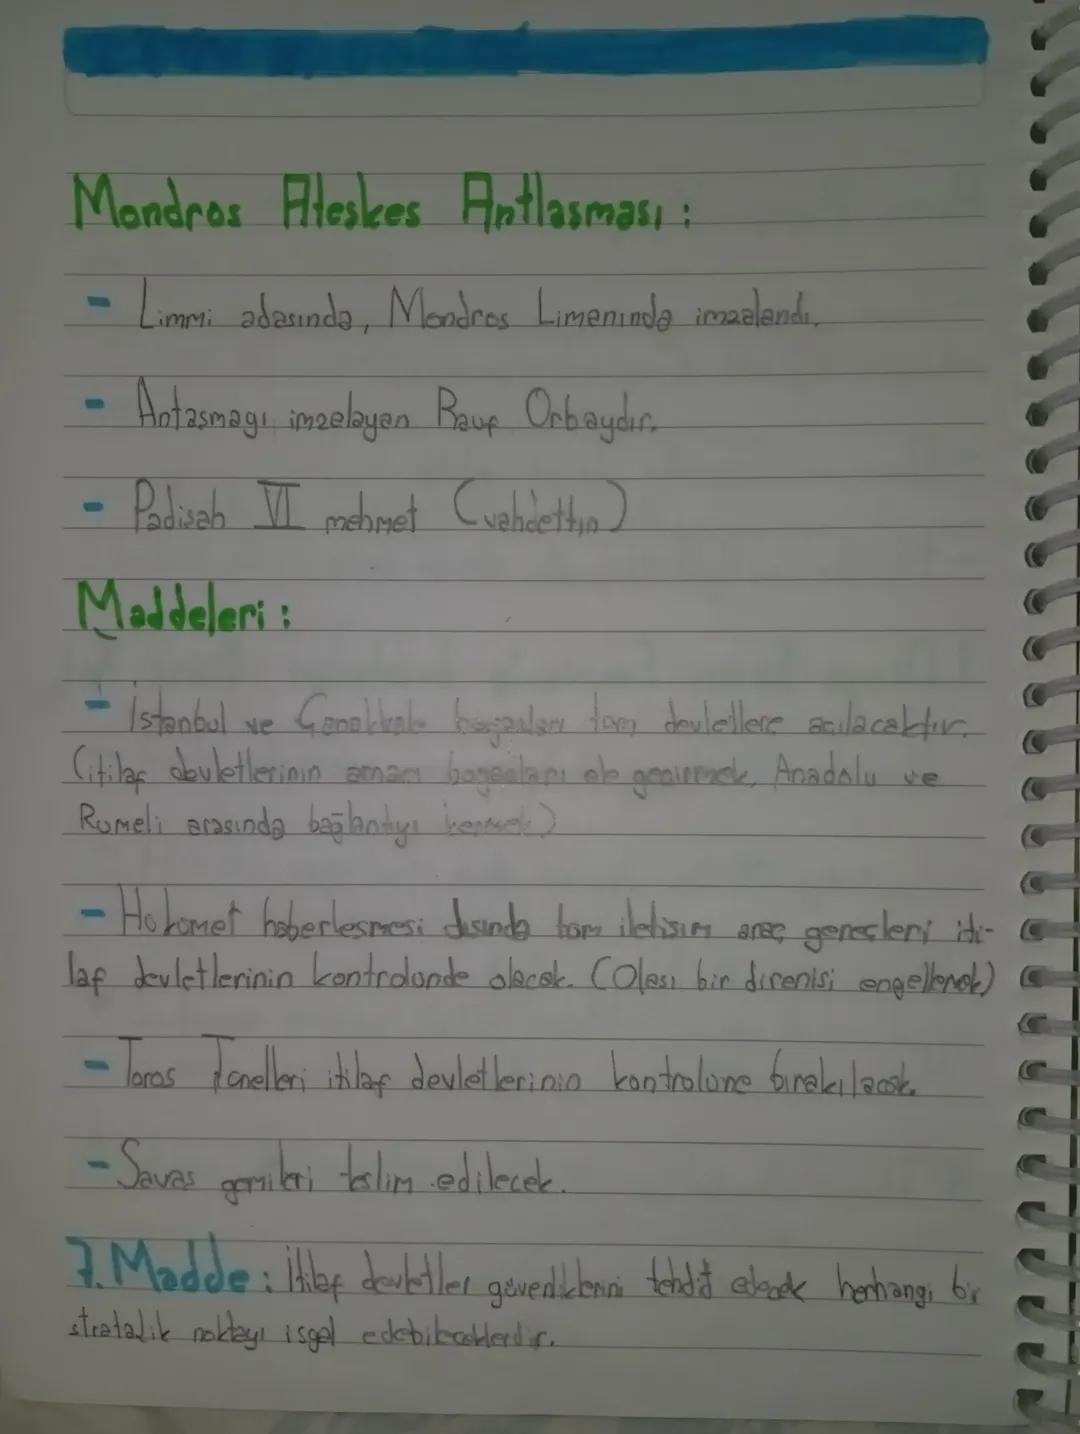 Mondros Ateskes Antlasması :
- Limmi adasında, Mondros Limanında imzalandı.
- Antasmayı imzalayan Rauf Orbaydır.
- Padisah VI mehmet (vahdettin)
Maddeleri :
- İstanbul ve Çanakkale bogazları tom devletlere acılacaktır.
(itilaf devletlerinin amacı bogazları ele gecirmek, Anadolu ve
Rumeli arasında bağlantıyı kesmek)
- Hokomet haberlesmesi dısında tom iletisim arac gerecleri iti-
laf devletlerinin kontrolonde olacak. (Olası bir direnisi engellemek)
- Toros Tonelleri itilaf devletlerinin kontrolone bırakılacak.
- Savas gemileri teslim edilecek.
7. Madde : İtilaf devletler güvenliklerini tehdit edecek herhangi bir
stratejik noktayı isgal edebileceklerdir.